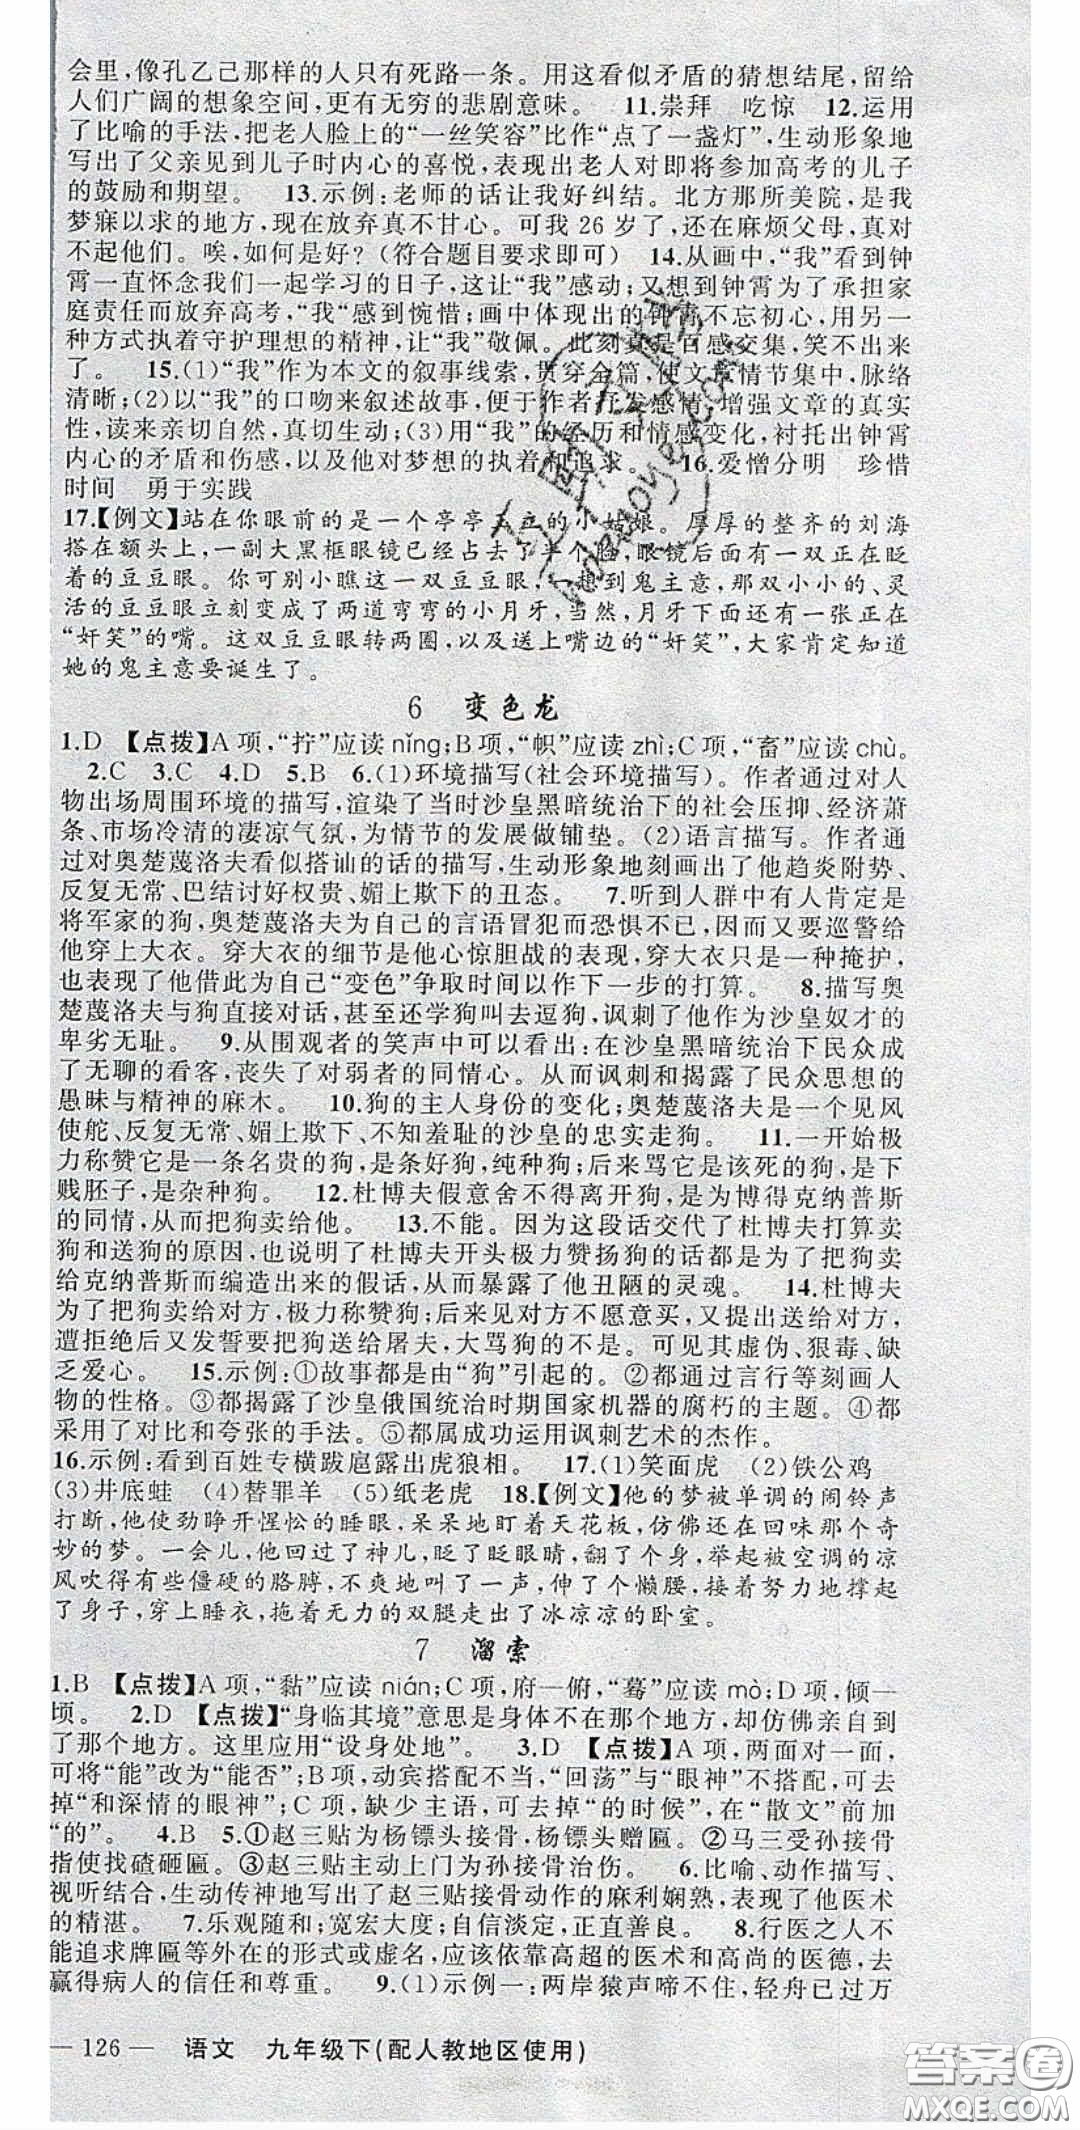 会里，像孔乙己那样的人只有死路一条。用这看似矛盾的猜想结尾，留给
人们广阔的想象空间，更有无穷的悲剧意味。 11.崇拜 吃惊 12.运用
了比喻的手法，把老人脸上的“一丝笑容”比作“点了一盏灯”，生动形象地
写出了父亲见到儿子时内心的喜悦，表现出老人对即将参加高考的儿子
的鼓励和期望。 13.示例：老师的话让我好纠结。北方那所美院，是我
梦寐以求的地方，现在放弃真不甘心。可我 26 岁了，还在麻烦父母，真对
不起他们。唉，如何是好？（符合题目要求即可） 14.从画中，“我”看到钟
霄一直怀念我们一起学习的日子，这让“我”感动；又想到钟霄为了承担家
庭责任而放弃高考，“我”感到惋惜；画中体现出的钟霄不忘初心，用另一
种方式执着守护理想的精神，让“我”敬佩。此刻真是百感交集，笑不出来
了。 15.(1)“我”作为本文的叙事线索，贯穿全篇，使文章情节集中，脉络
清晰；(2)以“我”的口吻来叙述故事，便于作者抒发感情，增强文章的真实
性，读来亲切自然，真切生动；(3)用“我”的经历和情感变化，衬托出钟霄
内心的矛盾和伤感，以及他对梦想的执着和追求。 16.爱憎分明 珍惜
时间 勇于实践
17.【例文】站在你眼前的是一个亭亭玉立的小姑娘。厚厚的整齐的刘海
搭在额头上，一副大黑框眼镜已经占去了半个脸，眼镜后面有一双正在眨
着的豆豆眼。你可别小瞧这一双豆豆眼，一想到鬼主意，那双小小的、灵
活的豆豆眼立刻变成了两道弯弯的小月牙，当然，月牙下面还有一张正在
“奸笑”的嘴。这双豆豆眼转两圈，以及这嘴边的“奸笑”，大家肯定知道
她的鬼主意要诞生了。
6 变色龙
1.D 【点拨】A 项，“拧”应读 nǐng；B 项，“帜”应读 zhì；C 项，“畜”应读 chù。
2.C 3.C 4.D 5.B 6.(1)环境描写（社会环境描写）。作者通过对人
物出场周围环境的描写，渲染了当时沙皇黑暗统治下的社会压抑、经济萧
条、市场冷清的凄凉气氛，为情节的发展做铺垫。(2)语言描写。作者通
过对奥楚蔑洛夫看似搭讪的话的描写，生动形象地刻画出了他趋炎附势、
反复无常、巴结讨好权贵、媚上欺下的丑态。 7.听到人群中有人肯定是
将军家的狗，奥楚蔑洛夫为自己的言语冒犯而恐惧不已，因而又要巡警给
他穿上大衣。穿大衣的细节是他心惊胆战的表现，穿大衣只是一种掩护，
也表现了他借此为自己“变色”争取时间以作下一步的打算。 8.描写奥
楚蔑洛夫与狗直接对话，甚至还学狗叫去逗狗，讽刺了他作为沙皇奴才的
卑劣无耻。 9.从围观者的笑声中可以看出：在沙皇黑暗统治下民众成
了无聊的看客，丧失了对弱者的同情心。从而讽刺和揭露了民众思想的
愚昧与精神的麻木。 10.狗的主人身份的变化；奥楚蔑洛夫是一个见风
使舵、反复无常、媚上欺下、不知羞耻的沙皇的忠实走狗。 11.一开始极
力称赞它是一条名贵的狗，是条好狗，纯种狗；后来骂它是该死的狗，是下
贱胚子，是杂种狗。 12.杜博夫假意舍不得离开狗，是为博得克纳普斯
的同情，从而把狗卖给他。 13.不能。因为这段话交代了杜博夫打算卖
狗和送狗的原因，也说明了杜博夫开头极力赞扬狗的话都是为了把狗卖
给克纳普斯而编造出来的假话，从而暴露了他丑陋的灵魂。 14.杜博夫
为了把狗卖给对方，极力称赞狗；后来见对方不愿意买，又提出送给对方，
遭拒绝后又发誓要把狗送给屠夫，大骂狗的不是。可见其虚伪、狠毒、缺
乏爱心。 15.示例：①故事都是由“狗”引起的。②都通过言行等刻画人
物的性格。③都揭露了沙皇俄国统治时期国家机器的腐朽的主题。④都
采用了对比和夸张的手法。⑤都属成功运用讽刺艺术的杰作。
16.示例：看到百姓专横跋扈露出虎狼相。 17.(1)笑面虎 (2)铁公鸡
(3)井底蛙 (4)替罪羊 (5)纸老虎 18.【例文】他的梦被单调的闹铃声
打断，他使劲睁开惺忪的睡眼，呆呆地盯着天花板，仿佛还在回味那个奇
妙的梦。一会儿，他回过了神儿，眨了眨眼睛，翻了个身，举起被空调的凉
风吹得有些僵硬的胳膊，不爽地叫了一声，伸了个懒腰，接着努力地撑起
了身子，穿上睡衣，拖着无力的双腿走出了冰凉凉的卧室。
7 溜索
1.B 【点拨】A 项，“黏”应读 nián；C 项，府—俯，“蓦”应读 mò；D 项，倾—
顷。 2.D 【点拨】“身临其境”意思是身体不在那个地方，却仿佛亲自到
了那个地方。这里应用“设身处地”。 3.D 【点拨】A 项，两面对一面，
可将“能”改为“能否”；B 项，动宾搭配不当，“回荡”与“眼神”不搭配，可去
掉“和深情的眼神”；C 项，缺少主语，可去掉“的时候”，在“散文”前加
“的”。 4.B 5.①赵三贴为杨镖头接骨，杨镖头赠匾。②马三受孙接骨
指使找碴砸匾。③赵三贴主动上门为孙接骨治伤。 6.比喻、动作描写、
视听结合，生动传神地写出了赵三贴接骨动作的麻利娴熟，表现了他医术
的精湛。 7.乐观随和；宽宏大度；自信淡定，正直善良。 8.行医之人不
能追求牌匾等外在的形式或虚名，应该依靠高超的医术和高尚的医德，去
赢得病人的信任和尊重。 9.(1)示例一：两岸猿声啼不住，轻舟已过万
— 126 — 语文 九年级下（配人教地区使用）
答案圈
MXQE.COM